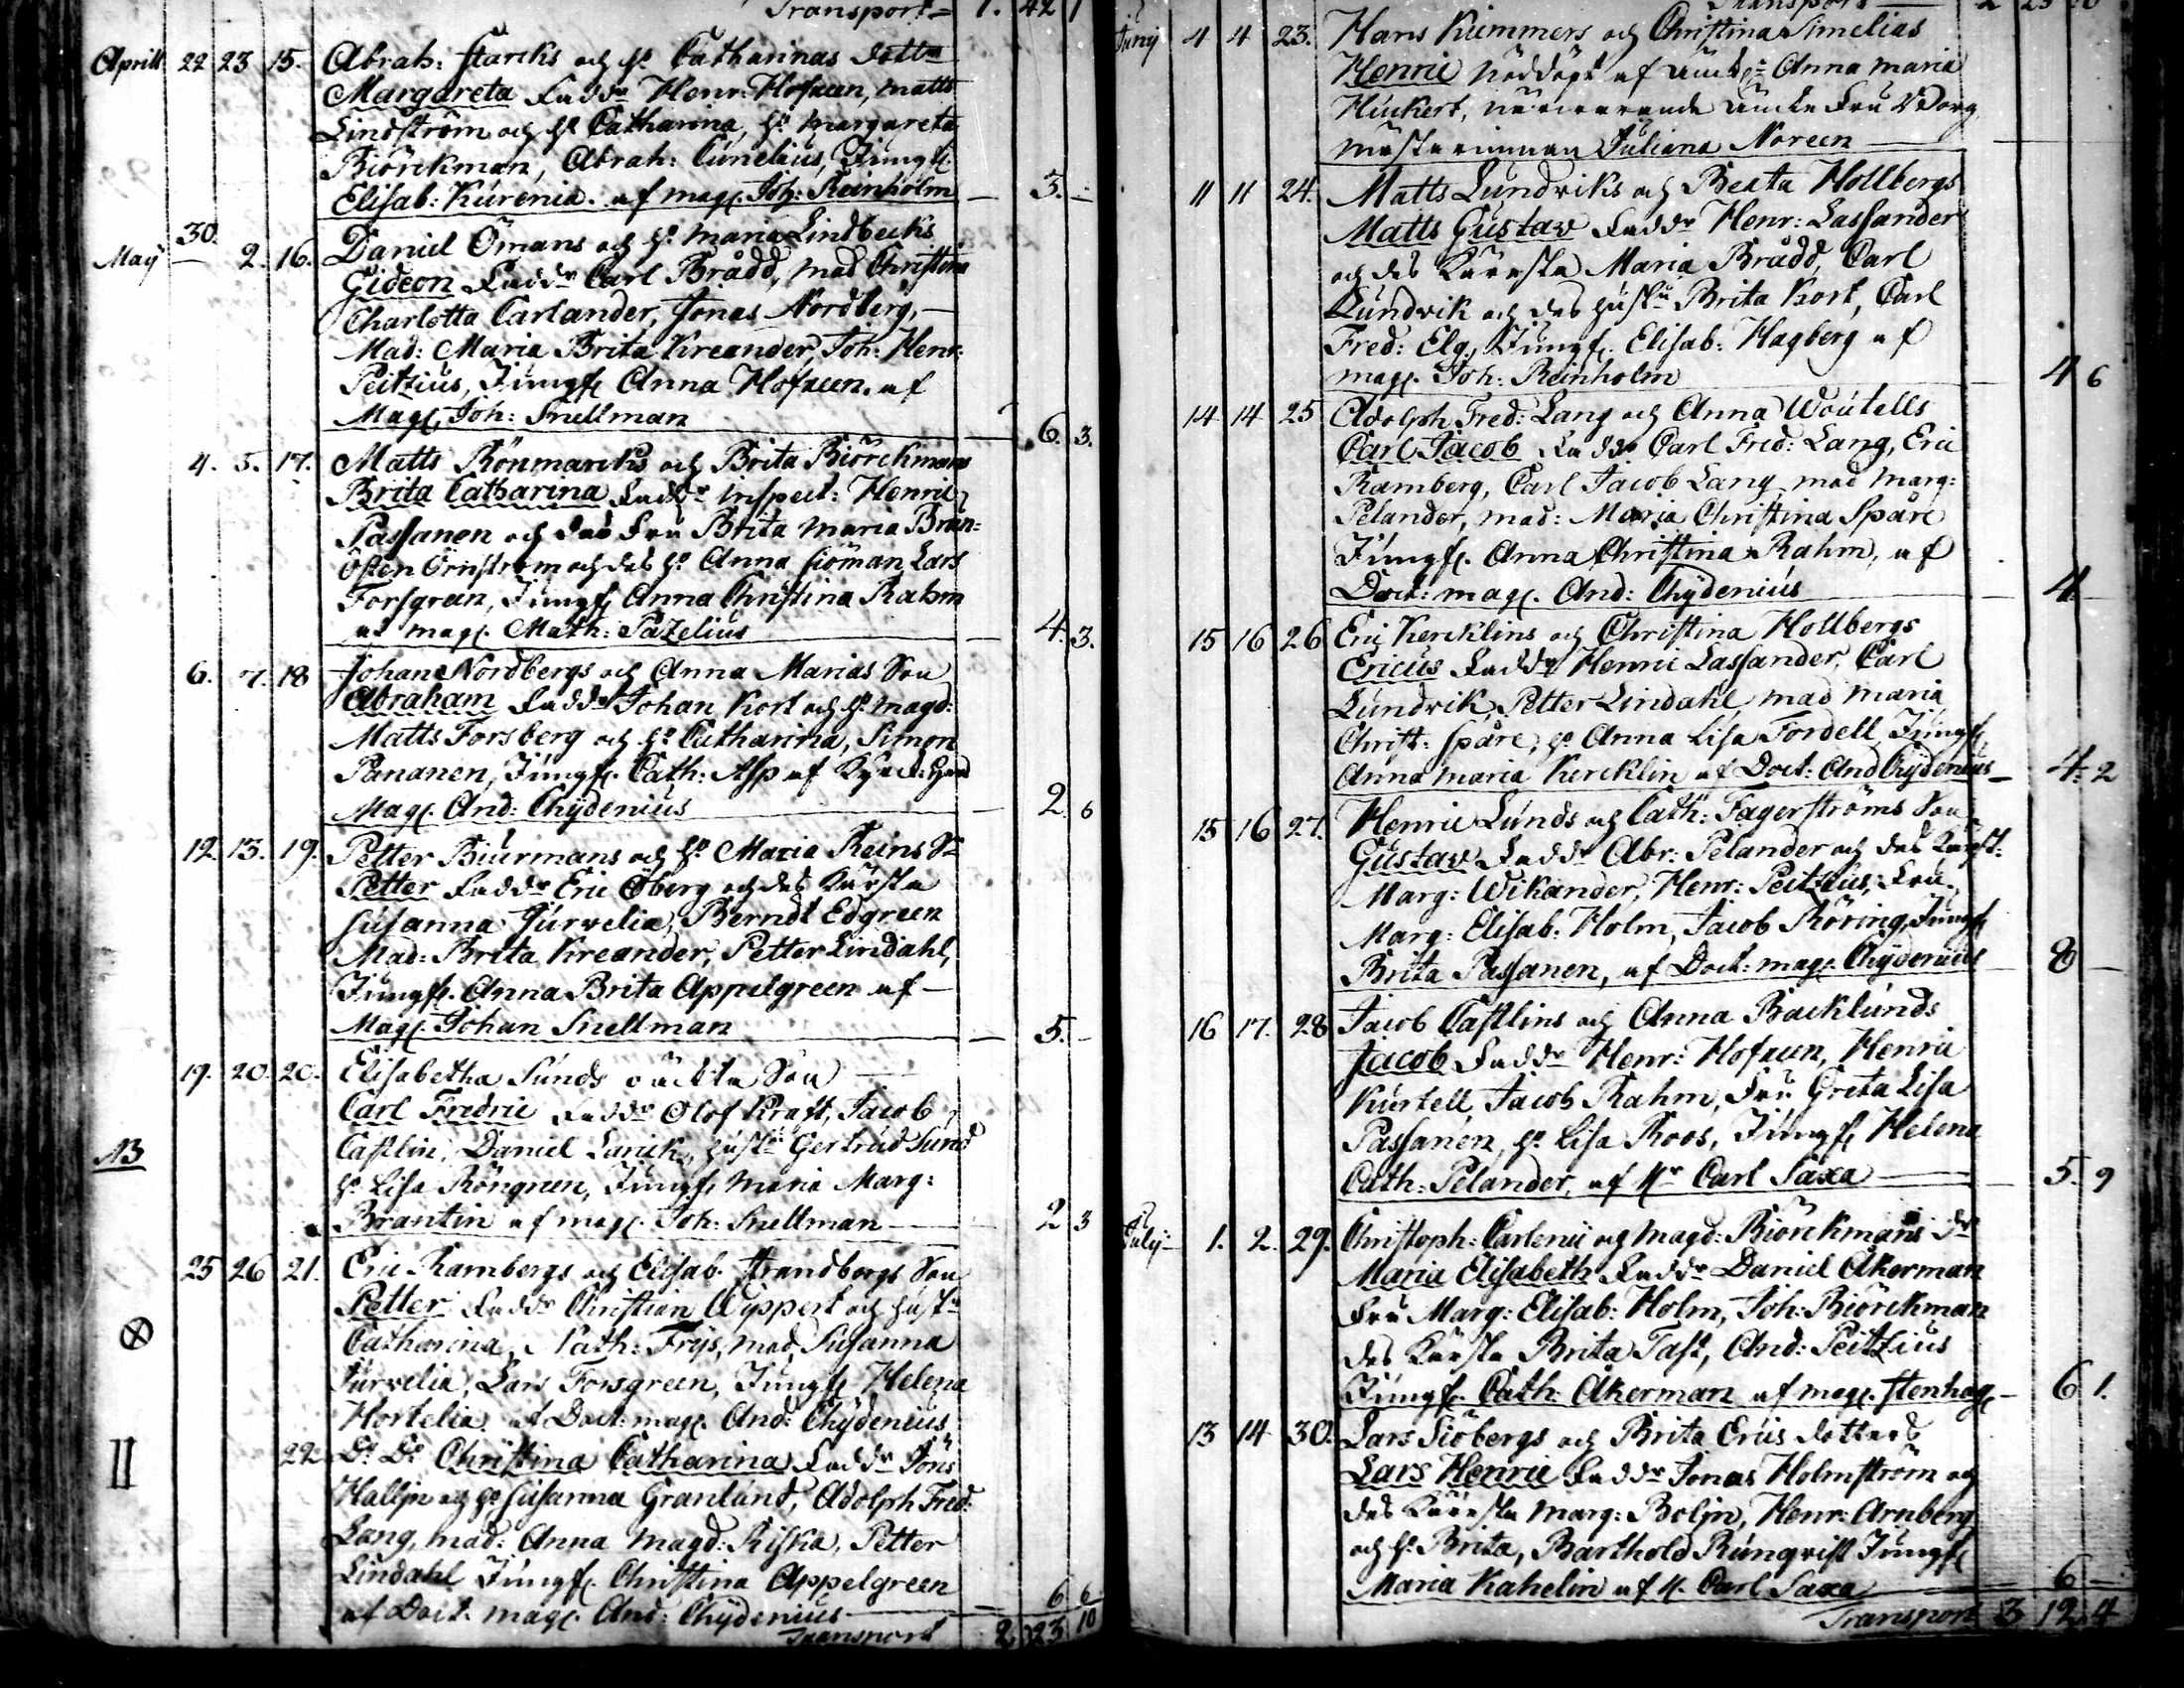 Transport 1. 42 1
Aprill 22 23 15. Abrah: Starcks och h: Catharinas dotter
Margareta Faddr Henr: Hofreen, Matts
Lindström och h: Catharina, h: Margareta
Biörckman, Abrah: Cunelius, Jungf:
Elisab: Kurenia. af mag: Joh: Reinholm 3. -
May 30. 2. 16. Daniel Ömans och h: Maria Lindbecks
Gideon Faddr Carl Brådd, mad Christina
Charlotta Carlander, Jonas Nordberg,
Mad: Maria Brita Kreander, Joh: Henr:
Peitzius, Jungf: Anna Hofreen. af
Mag: Joh: Snellman 6. 3.
4. 5. 17. Matts Rönmarcks och Brita Biörckmans
Brita Catharina Faddr inspect: Henric
Passanen och des Fru Brita Maria Brun:
Östen Örnström och des h: Anna Siöman, Lars
Forsgreen, Jungf: Anna Christina Rahm
af mag: Math: Pazelius 4. 3.
6. 7. 18 Johan Nordbergs och Anna Marias Son
Abraham Faddr Johan Kort och h: Magd:
Matts Forsberg och h: Catharina, Simon
Pananen, Jungf: Cath: Asp af
Mag: And: Chydenius 2 6
12. 13. 19. Petter Biurmans och h: Maria Reins S:
Petter Faddr Eric Öberg och des Käresta
Susanna Jurvelia, Berndt Edgreen
Mad: Brita Kreander, Petter Lindahl,
Jungf: Anna Brita Appelgreen af
Mag: Johan Snellman 5. -
19. 20. 20. Elisabetha Sunds oäckta Son
Carl Fredric Faddr Olof Kraft, Jacob
NB Castlin, Daniel Larick, hust: Gertrud Sund
h: Lisa Röngren, Jungf: Maria Marg:
Brantin af mag: Joh: Snellman 2 3
25 26 21. Eric Rambergs och Elisab. Strandbergs Son
Petter Faddr Christian Wyppert och hust:
Catharina, Nath: Frijs, mad Susanna
Jurvelia, Lars Forsgreen, Jungf: Helena
Hortelia. af Doct: mag: And: Chydenius.
II 22 D: D: Christina Catharina Faddr Jöns
Halljn och h: Susanna Granlund, Adolph Fred:
Lang, mad: Anna Magd: Riska, Petter
Lindahl Jungf: Christina Appelgreen
af Doct: mag: And: Chydenius 6 6
Transport 2 23 10
Transport 2 23 10
Juny 4 4 23. Hans Kummers och Christina Simelias
Henric nöddöpt af Anna Maria
Hinckert, närwarande Fru Borg
mästarinnan Juliana Noreen
11 11 24. Matts Lundviks och Beata Hollbergs
Matts Gustav Faddr Henr: Lassander
och des Käresta Maria Brådd, Carl
Lundvik och des hustru Brita Kort, Carl
Fred: Elg, Jungf: Elisab: Hagberg af
mag: Joh: Reinholm 4 6
14 14 25 Adolph Fred: Lang och Anna Woutells
Carl Jacob Faddr Carl Fred: Lang, Eric
Ramberg, Carl Jacob Lang, mad Marg:
Pelander, mad: Maria Christina Spåre
Jungf: Anna Christina Rahm, af
Doct: mag: And: Chydenius 4
15 16 26 Eric Kercklins och Christina Hollbergs
Ericus Faddr Henric Lassander, Carl
Lundvik, Petter Lindahl, mad Maria
Christ: Spåre, h: Anna Lisa Fordell Jungf:
Anna Maria Kercklin af Doct: And Chydenius 4. 2
15 16 27. Henric Lunds och Cath: Fagerströms Son
Gustav Faddr Abr: Pelander och des Kärest:
Marg: Wikander, Henr: Peitzius, Fru
Marg: Elisab: Holm, Jacob Röring, Jungf:
Brita Passanen, af Doct: mag: Chydenius 8 -
16 17. 28 Jacob Castlins och Anna Backlunds
Jacob Faddr Henr: Hofreen, Henric
Kurtell, Jacob Rahm, Fru Greta Lisa
Passanen, h: Lisa Roos, Jungf: Helena
Cath: Pelander, af Hr Carl Saxa 5. 9
July 1. 2. 29. Christoph: Carlenii och Magd: Biörckmans dr
Maria Elisabeth Faddr Daniel Åkerman
Fru Marg: Elisab: Holm, Joh: Biörckman
des Kärsta Brita Fast, And: Peitzius
Jungf: Cath: Åkerman af mag: Stenhag 6 1.
13 14 30. Lars Siöbergs och Brita Ericsdotters
Lars Henric Faddr Jonas Holmström och
des Kärsta Marg: Boljn, Henr: Arnberg
och h: Brita, Barthold Runqvist Jungf:
Maria Kahelin af H. Carl Saxa 6 -
Transport 3 12 4